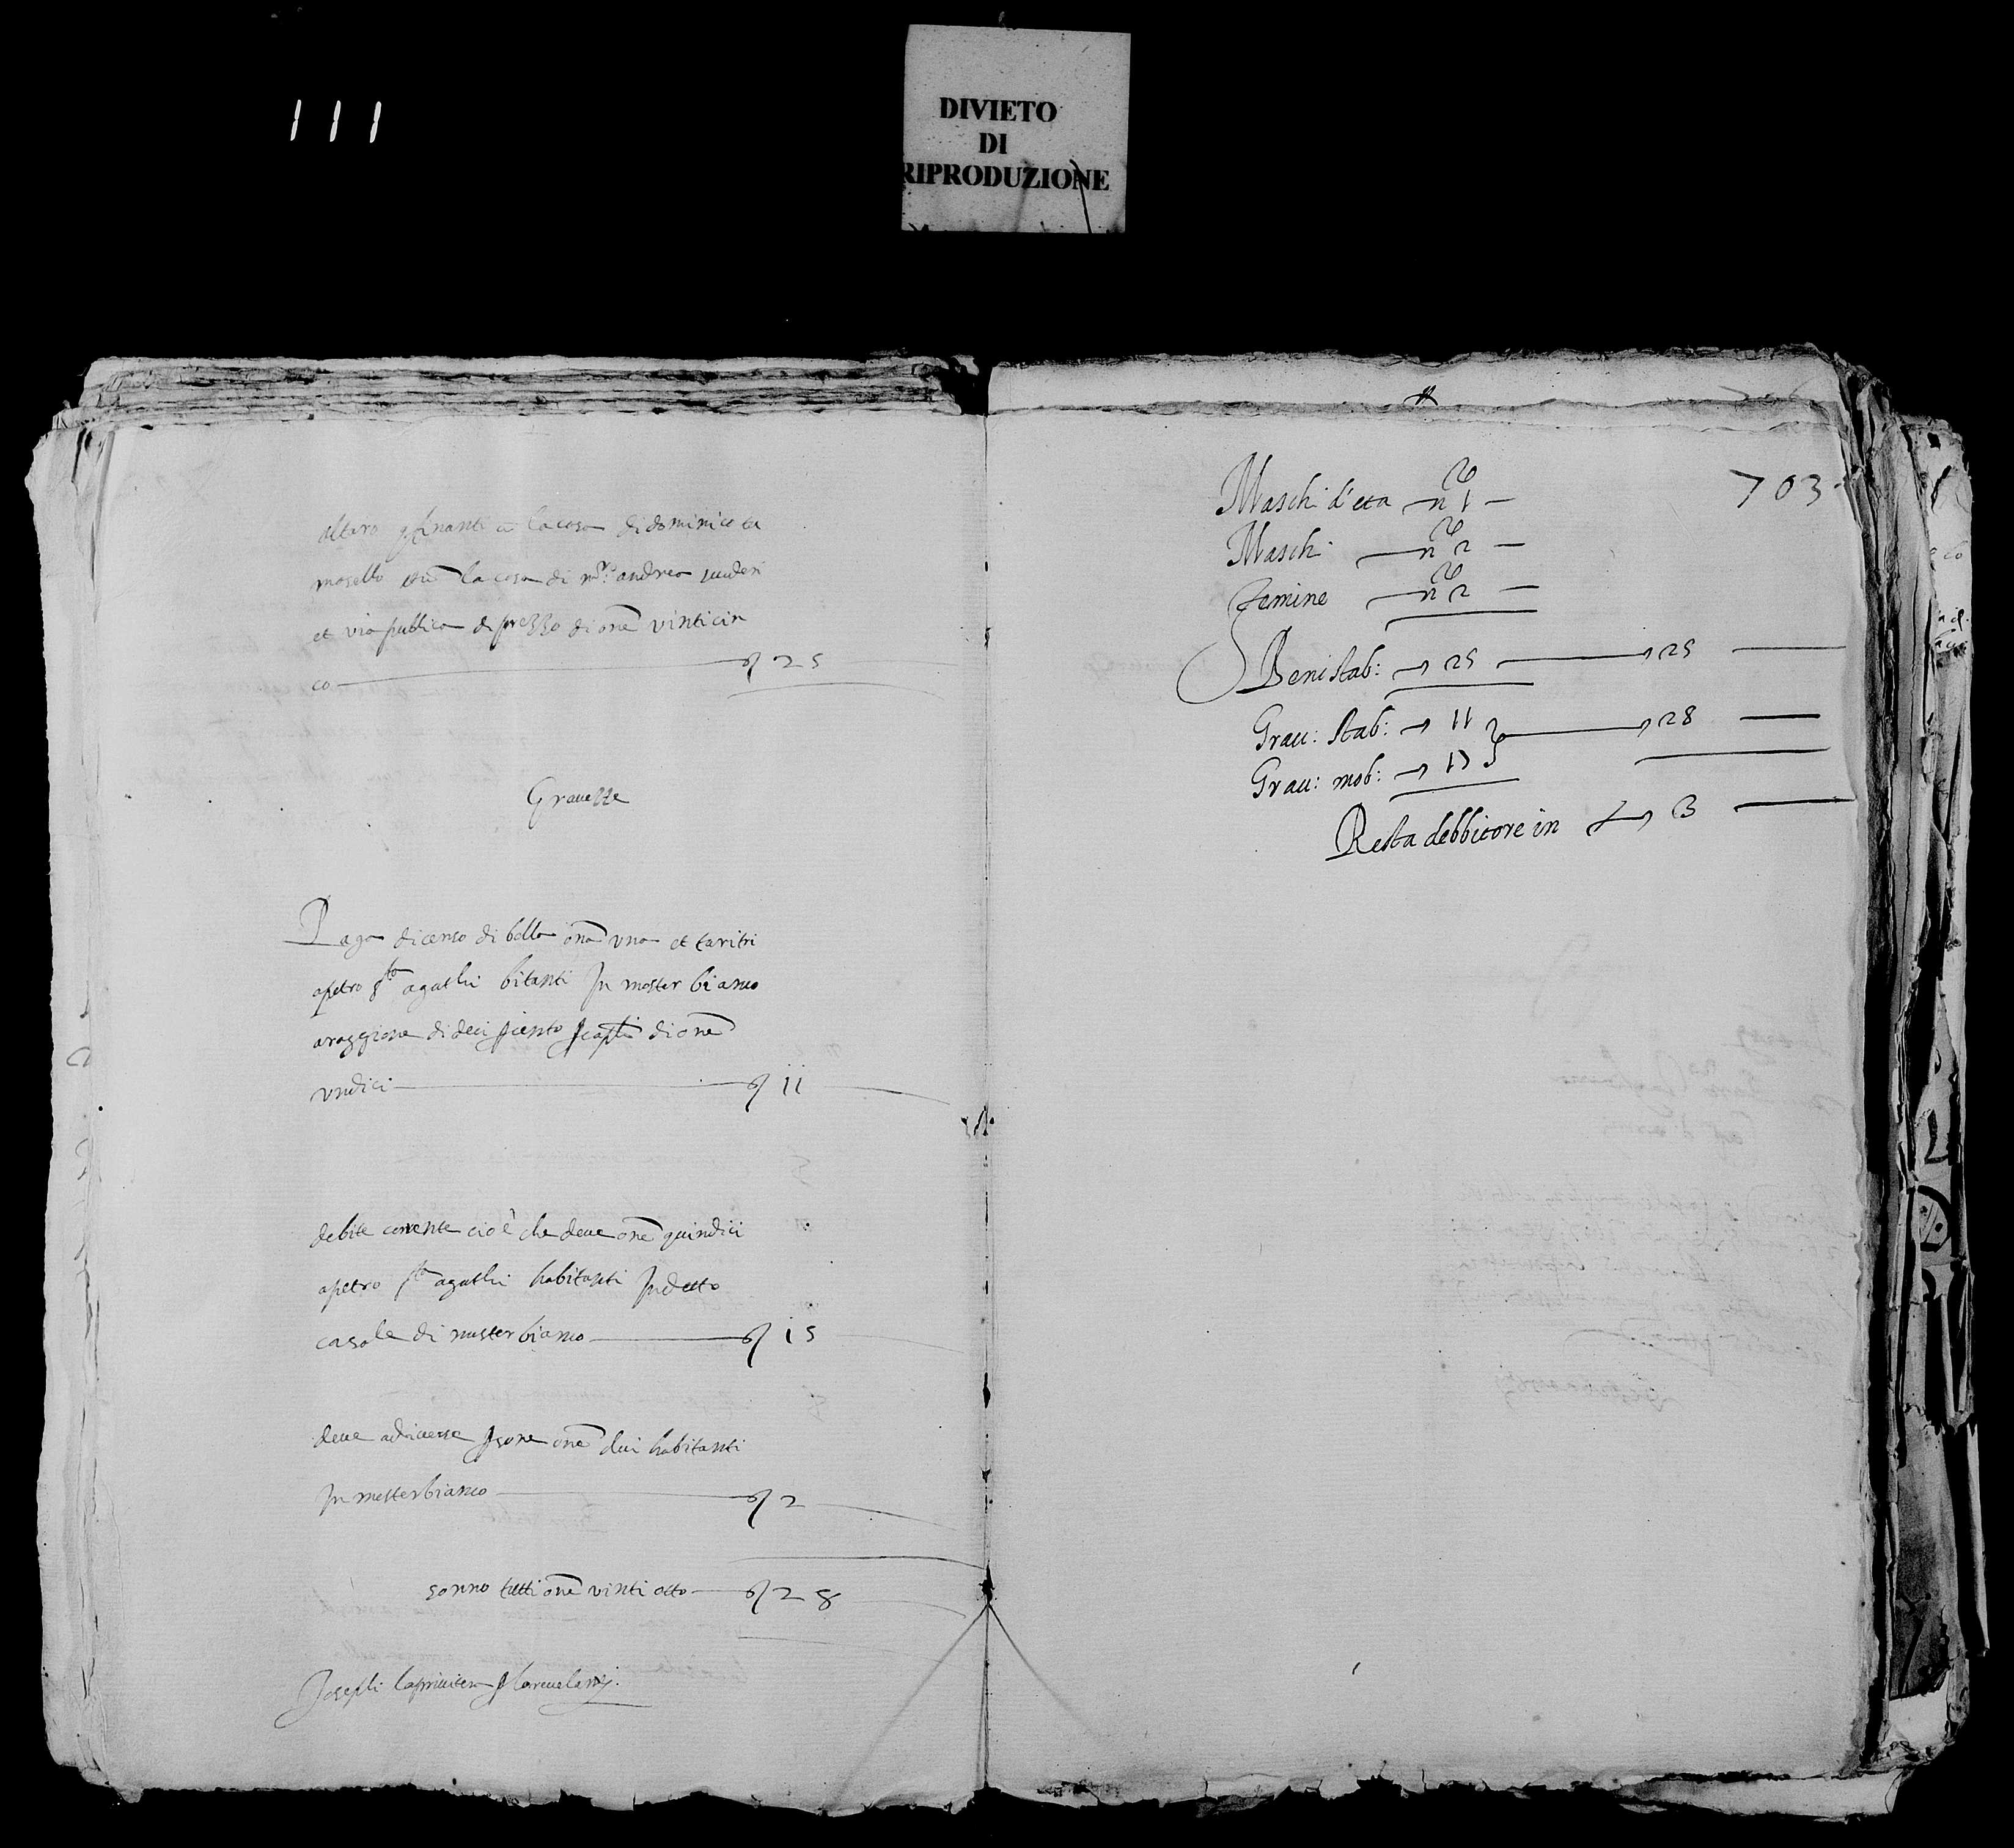 111
DIVIETO
DI
RIPRODUZIONE
altaro confinanti a la casa di dominico ta
mosello et la casa di andrea
et via publica di prezzo di onze vinticin
co 25
Gravezze
Paga di censo di bolla onza una et tari tri
a petro agathi bitanti In moster bianco
a raggione di deci per cento di onze
undici 11
debite corrente cioè che deve onze quindici
a petro agathi habitanti In detto
casale di muster bianco 15
deve a diverse persone onze dui habitanti
In mesterbianco 2
sonno tutti onze vinti otto 28
Joseph
703
Maschi d'eta n 1
Maschi n 2
Femine n 2
Beni stab: 25 25
Grav: stab: 11 28
Grav: mob: 17
Resta debbitore in 3